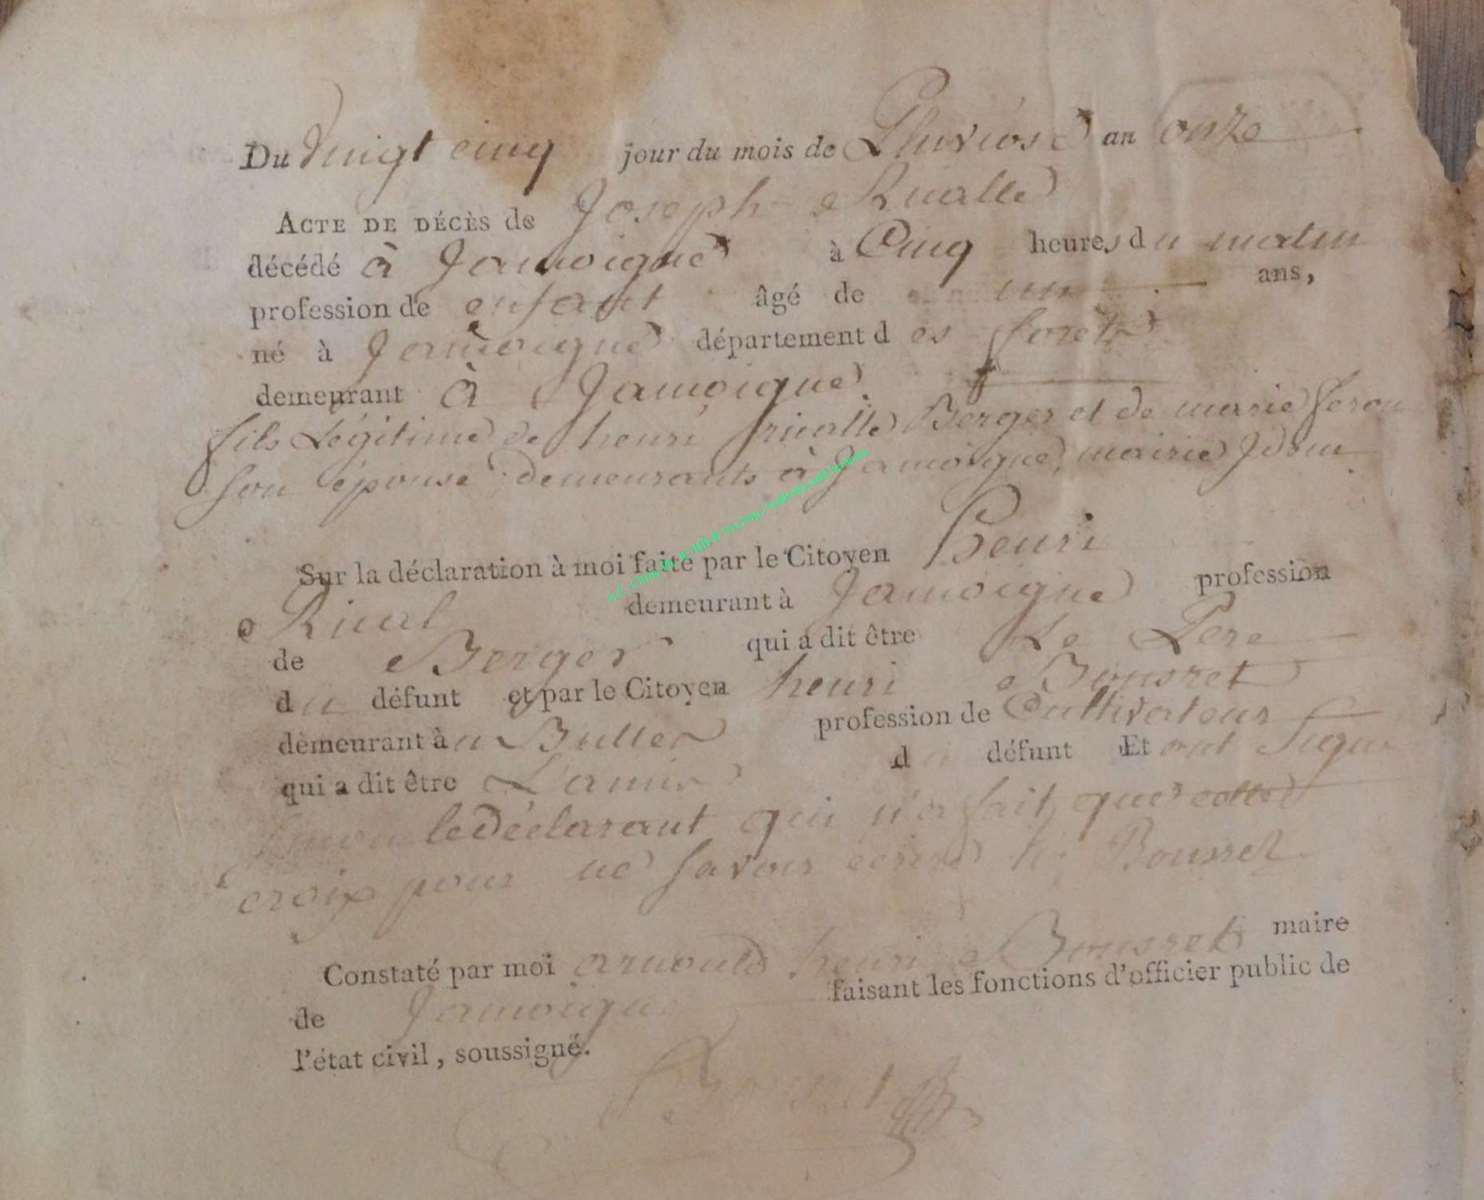 Du vingt cinq jour du mois de Pluviose an onze
ACTE DE DÉCÈS de Joseph Rualle
décédé à Jamoigne à Cinq heures du matin
profession de enfant âgé de un ans,
né à Jamoigne département des forêts
demeurant à Jamoigne
fils Légitime de henri rualle Berger et de marie
son épouse demeurants à Jamoigne mairie Idem
Sur la déclaration à moi faite par le Citoyen Henri
Rual demeurant à Jamoigne profession
de Berger qui a dit être Le Pere
du défunt et par le Citoyen henri Bousret
demeurant à profession de Cultivateur
qui a dit être L'amis du défunt Et ont signé
le déclarant qui n'a fait que cette
croix pour ne savoir écrire h. Bousret
Constaté par moi arnould henri Bousret maire
de Jamoigne faisant les fonctions d'officier public de
l'état civil, soussigné.